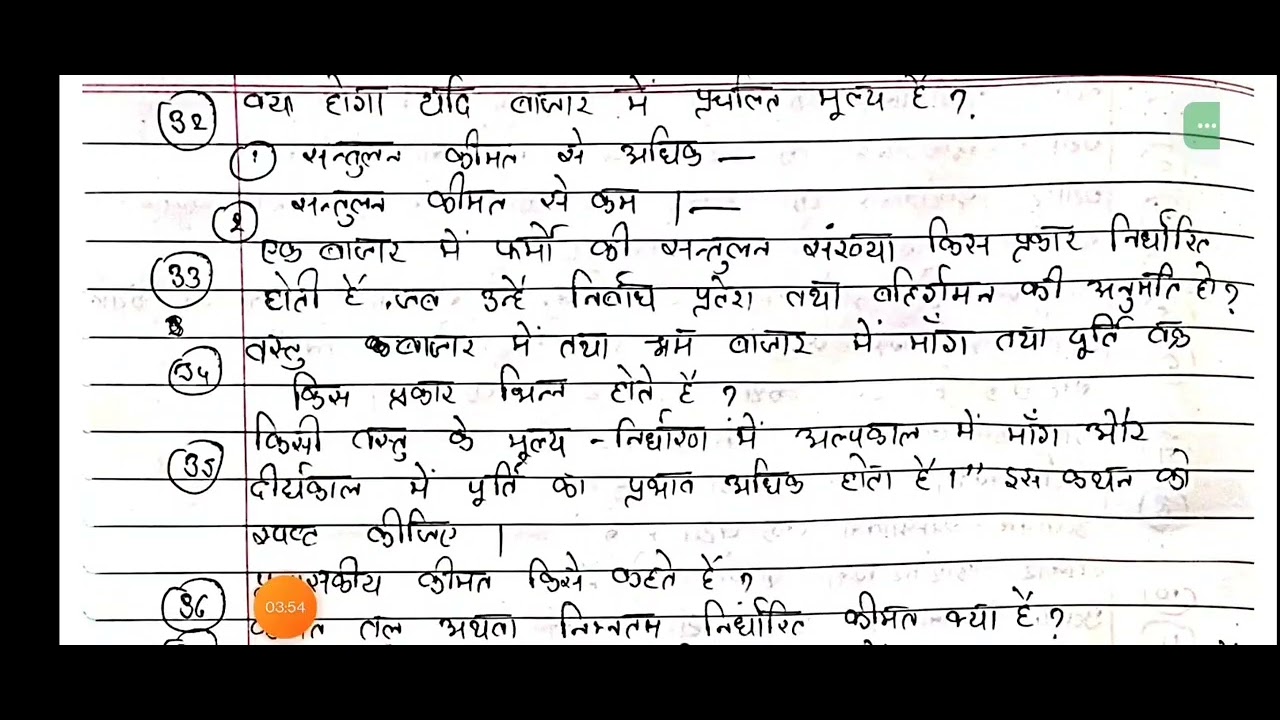 32 क्या होगा यदि बाजार में प्रचलित मूल्य है ?
1 सन्तुलन कीमत से अधिक —
2 सन्तुलन कीमत से कम । —
33 एक बाजार में फर्मों की सन्तुलन संख्या किस प्रकार निर्धारित
होती है , जब उन्हें निर्बाध प्रवेश तथा बहिर्गमन की अनुमति हो ?
34 वस्तु बाजार में तथा श्रम बाजार में माँग तथा पूर्ति वक्र
किस प्रकार भिन्न होते है ?
35 किसी वस्तु के मूल्य - निर्धारण में अल्पकाल में माँग और
दीर्घकाल में पूर्ति का प्रभाव अधिक होता है ।" इस कथन को
स्पष्ट कीजिए ।
36 कीमत किसे कहते हैं ?
03:54
तल अथवा निम्नतम निर्धारित कीमत क्या है ?